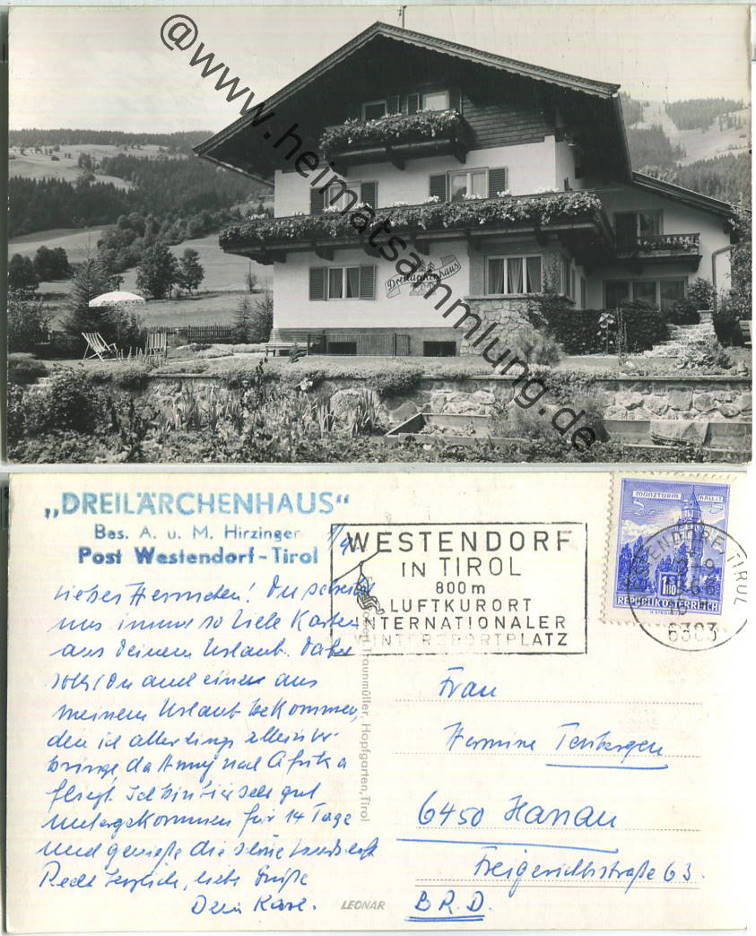 @www.heimatsammlung.de
Dreilärchenhaus
„DREILÄRCHENHAUS"
Bes. A. u. M. Hirzinger
Post Westendorf-Tirol
WESTENDORF
IN TIROL
800 m
LUFTKURORT
INTERNATIONALER
WINTERSPORTPLATZ
WESTENDORF, TIROL
6363
MÜNZTURM HALL I. T.
REPUBLIK ÖSTERREICH
Liebes Herminchen! Du schickst
uns immer so viele Karten
aus Deinem Urlaub. Dafür
sollst Du auch einen aus
meinem Urlaub bekommen,
den ich allerdings allein ver-
bringe, da Anny nach Afrika
fliegt. Ich bin hier sehr gut
untergekommen für 14 Tage
und genieße die schöne Landschaft
Recht herzliche, liebe Grüße
Dein Karl.
Traunmüller, Hopfgarten, Tirol
LEONAR
Frau
Hermine Tenbergen
6450 Hanau
Freigerichtstraße 63.
B.R.D.